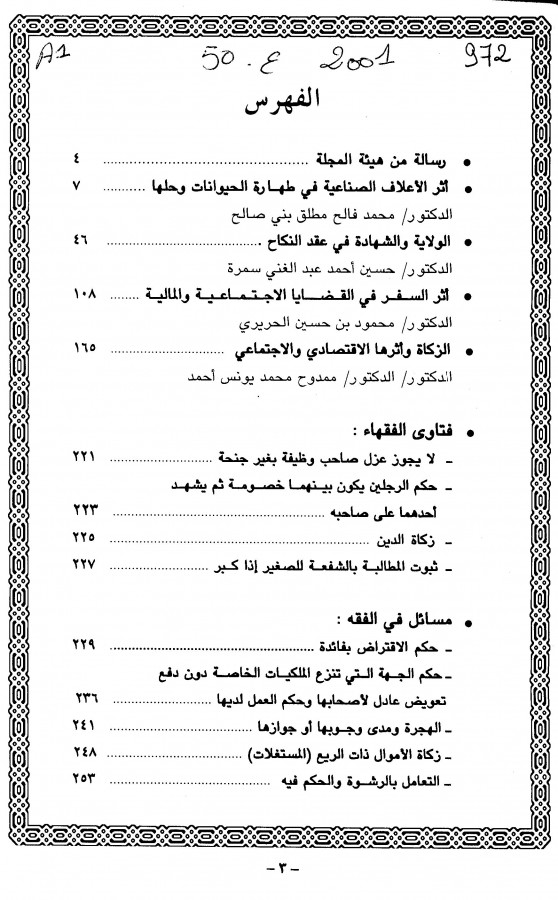 A1 50.ع 2001 972
الفهرس
• رسالة من هيئة المجلة ................ ٤
• أثر الأعلاف الصناعية في طهارة الحيوانات وحلها ........... ٧
الدكتور/ محمد فالح مطلق بني صالح
• الولاية والشهادة في عقد النكاح ................ ٤٦
الدكتور/ حسين أحمد عبد الغني سمرة
• أثر السفر في القضايا الاجتماعية والمالية ........ ١٠٨
الدكتور/ محمود بن حسين الحريري
• الزكاة وأثرها الاقتصادي والاجتماعي ................ ١٦٥
الدكتور/ الدكتور/ ممدوح محمد يونس أحمد
• فتاوى الفقهاء :
- لا يجوز عزل صاحب وظيفة بغير جنحة ................ ٢٢١
- حكم الرجلين يكون بينهما خصومة ثم يشهد
أحدهما على صاحبه ................ ٢٢٣
- زكاة الدين ................ ٢٢٥
- ثبوت المطالبة بالشفعة للصغير إذا كبر ................ ٢٢٧
• مسائل في الفقه :
- حكم الاقتراض بفائدة ................ ٢٢٩
- حكم الجهة التي تنزع الملكيات الخاصة دون دفع
تعويض عادل لأصحابها وحكم العمل لديها ................ ٢٣٦
- الهجرة ومدى وجوبها أو جوازها ................ ٢٤١
- زكاة الأموال ذات الريع (المستغلات) ................ ٢٤٨
- التعامل بالرشوة والحكم فيه ................ ٢٥٣
- ٣ -